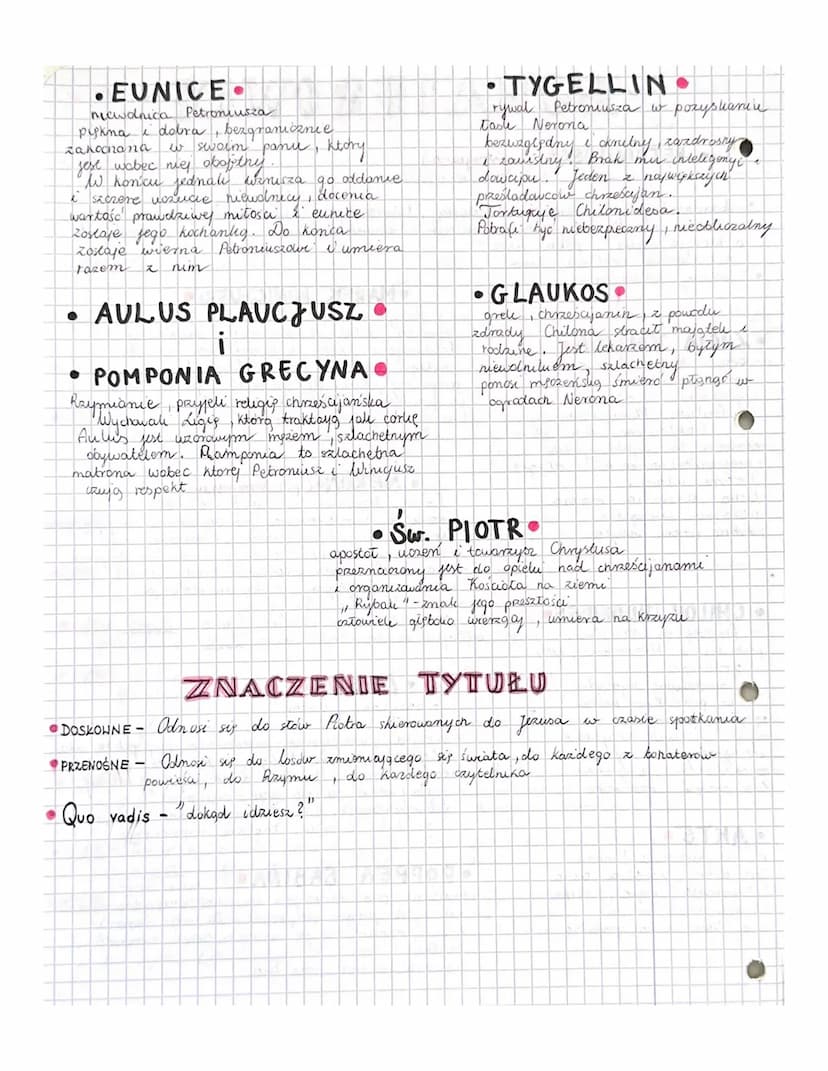 • EUNICE •
niewolnica Petroniusza
piękna i dobra, bezgranicznie
zakochana w swoim panu, który
jest wobec niej obojętny.
W końcu jednak wzrusza go oddanie
i szczere uczucie niewolnicy, docenia
wartość prawdziwej miłości i eunice
zostaje jego kochanką. Do końca
zostaje wierna Petroniuszowi i umiera
razem z nim
• AULUS PLAUCJUSZ •
i
• POMPONIA GRECYNA •
Rzymianie, przyjeli religię chrześcijańska
Wychowali Ligię, którą traktają jak corkę
Aulus jest wzorowym mężem, szlachetnym
obywatelem. Pomponia to szlachetna
matrona wobec ktorej Petroniusz i Winicjusz
czują respekt
• TYGELLIN •
rywal Petroniusza w pozyskaniu
łask Nerona
bezwzględny i okrutny, zazdrosny
i zawistny. Brak mu inteligencji i
dowcipu. Jeden z największych
prześladowców chrześcijan.
Torturuje Chilonidesa.
Potrafi być niebezpieczny, nieobliczalny
• GLAUKOS •
grek, chrześcijanin, z powodu
zdrady Chilona stracił majątek i
rodzine. Jest lekarzem, byłym
niewolnikiem, szlachetny
ponosi męczeńską śmierć płonąć w
ogrodach Nerona
• Św. PIOTR •
apostoł, uczeń i towarzysz Chrystusa
przeznaczony jest do opieki nad chrześcijanami
i organizowania Kościoła na ziemi
„Rybak" - znak jego przeszłości
człowiek głęboko wierzący, umiera na krzyżu
ZNACZENIE TYTUŁU
• DOSŁOWNE - Odnosi się do słów Piotra skierowanych do Jezusa w czasie spotkania
• PRZENOŚNE - Odnosi się do losów zmieniającego się świata, do każdego z bohaterów
powieści, do Rzymu, do każdego czytelnika
• Quo vadis - "dokąd idziesz?"